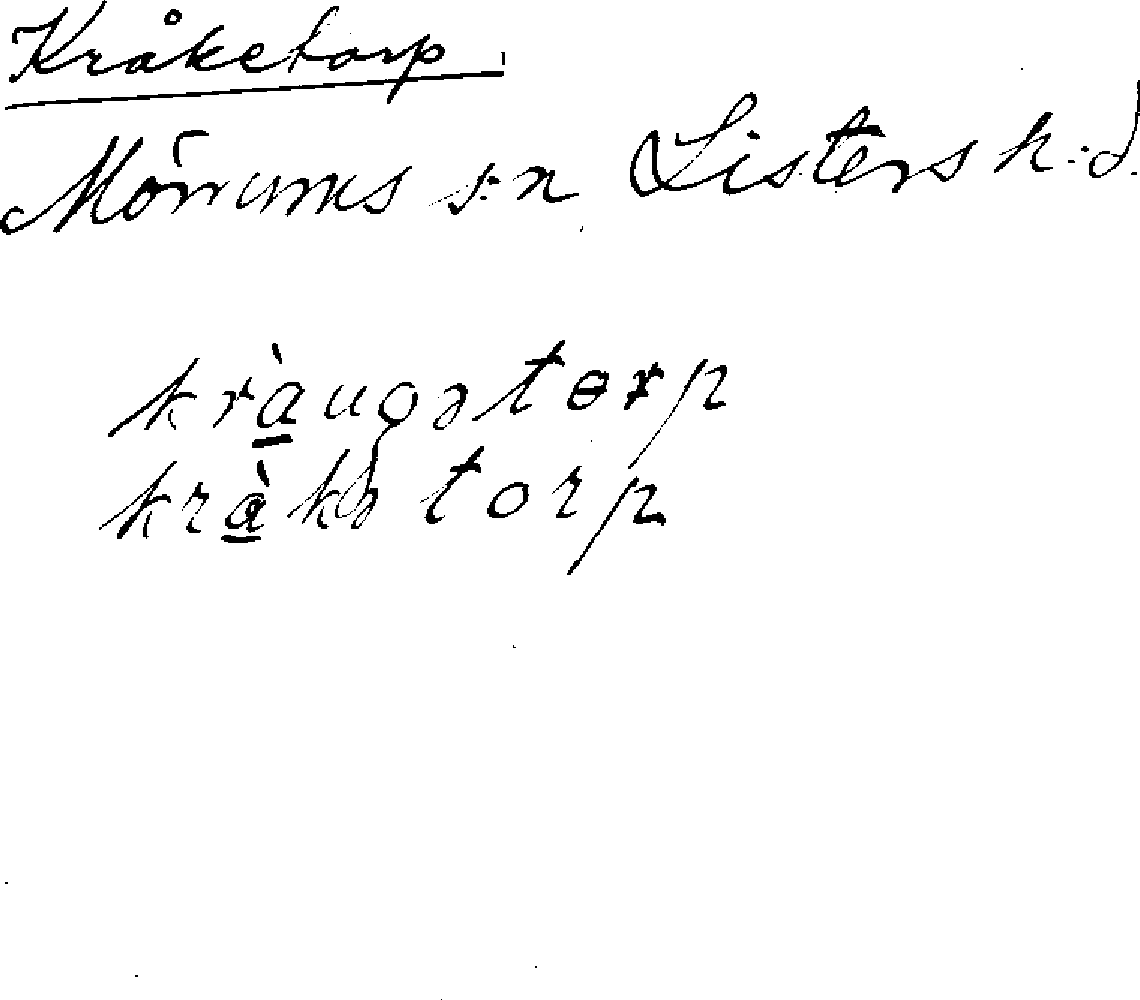 Kråketorp.
Mörrums s:n Listers h:d.
kràugətɵrp
kràkətorp